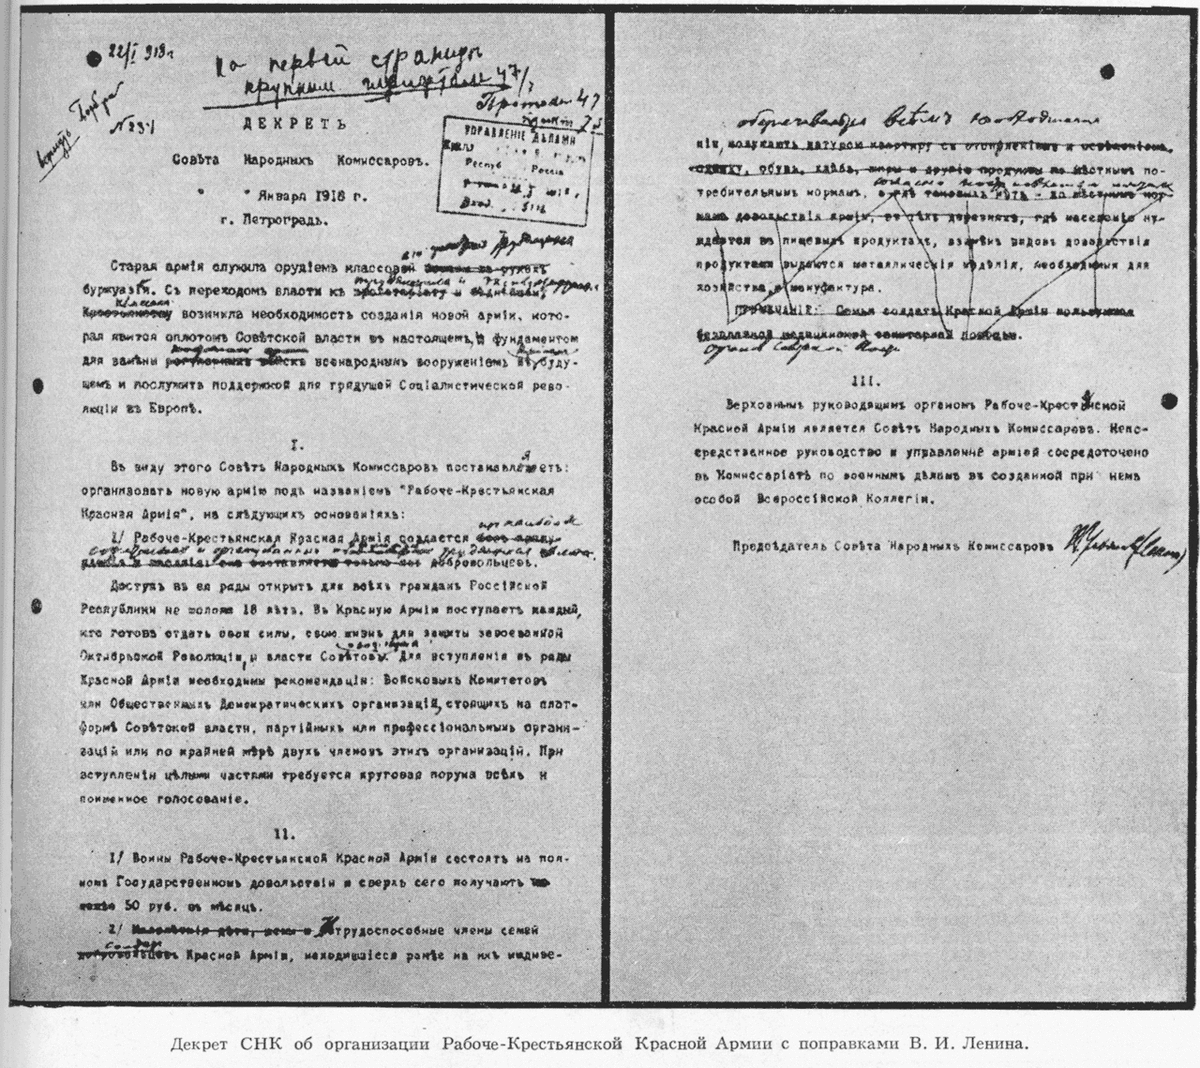 22/I 918 г
На первой страницы
крупным шрифтом 47/
Протокол 47
пункт 7
ДЕКРЕТЪ
УПРАВЛЕНІЕ ДѢЛАМИ
Респуб Россіи
Вход.
Совѣта Народныхъ Комиссаровъ.
" " Января 1918 г.
г. Петроградъ.
Старая армія служила орудіемъ классовой
буржуазіи. Съ переходомъ власти къ пролетаріату и бѣднѣйшему
Крестьянству возникла необходимость созданія новой арміи, кото-
рая явится оплотомъ Совѣтской власти въ настоящемъ, фундаментом
для замѣны регулярныхъ войскъ всенароднымъ вооруженіемъ въ буду-
щемъ и послужитъ поддержкой для грядущей Соціалистической рево-
люціи въ Европѣ.
I.
Въ виду этого Совѣтъ Народныхъ Комиссаровъ постановляетъ:
организовать новую армію подъ названіемъ "Рабоче-Крестьянская
Красная Армія", на слѣдующихъ основаніяхъ:
1/ Рабоче-Крестьянская Красная Армія создается
добровольцевъ.
Доступъ въ ея ряды открытъ для всѣхъ гражданъ Россійской
Республики не моложе 18 лѣтъ. Въ Красную Армію поступаетъ каждый,
кто готовъ отдать свои силы, свою жизнь для защиты завоеванной
Октябрьской Революціи, и власти Совѣтовъ. Для вступленія въ ряды
Красной Арміи необходимы рекомендаціи: Войсковыхъ Комитетовъ
или Общественныхъ Демократическихъ организацій, стоящихъ на плат-
формѣ Совѣтской власти, партійныхъ или профессіональныхъ органи-
зацій или по крайней мѣрѣ двухъ членовъ этихъ организацій. При
вступленіи цѣлыми частями требуется круговая порука всѣхъ и
поименное голосованіе.
11.
1/ Воины Рабоче-Крестьянской Красной Арміи состоятъ на пол-
номъ Государственномъ довольствіи и сверхъ сего получаютъ
50 руб. въ мѣсяцъ.
2/ Нетрудоспособные члены семей
солдат
добровольцевъ Красной Арміи, находившіеся ранѣе на ихъ иждиве-
обезпечиваются всѣмъ необходимым
ніи, получаютъ натурою квартиру съ отопленіемъ и освѣщеніемъ,
одежду, обувь, хлѣбъ, жиры и другіе продукты по мѣстнымъ по-
требительнымъ нормамъ, а гдѣ таковыхъ нѣтъ - по мѣстнымъ нор-
мамъ довольствія арміи, въ тѣхъ деревняхъ, гдѣ населеніе ну-
ждается въ пищевыхъ продуктахъ, взамѣнъ видовъ довольствія
продуктами выдаются металлическія издѣлія, необходимыя для
хозяйства, и мануфактура.
ПРИМѢЧАНІЕ: Семьи солдатъ Красной Арміи пользуются
безплатной медицинской санитарной помощью.
III.
Верховнымъ руководящимъ органомъ Рабоче-Крестьянской
Красной Арміи является Совѣтъ Народныхъ Комиссаровъ. Непо-
средственное руководство и управленіе арміей сосредоточено
въ Комиссаріатѣ по военнымъ дѣламъ въ созданной при немъ
особой Всероссійской Коллегіи.
Предсѣдатель Совѣта Народныхъ Комиссаровъ
Декрет СНК об организации Рабоче-Крестьянской Красной Армии с поправками В. И. Ленина.